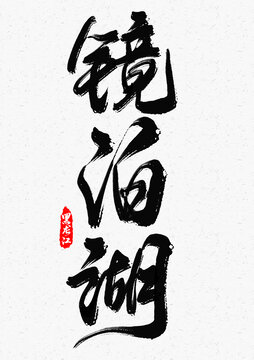 镜泊湖
黑龙江